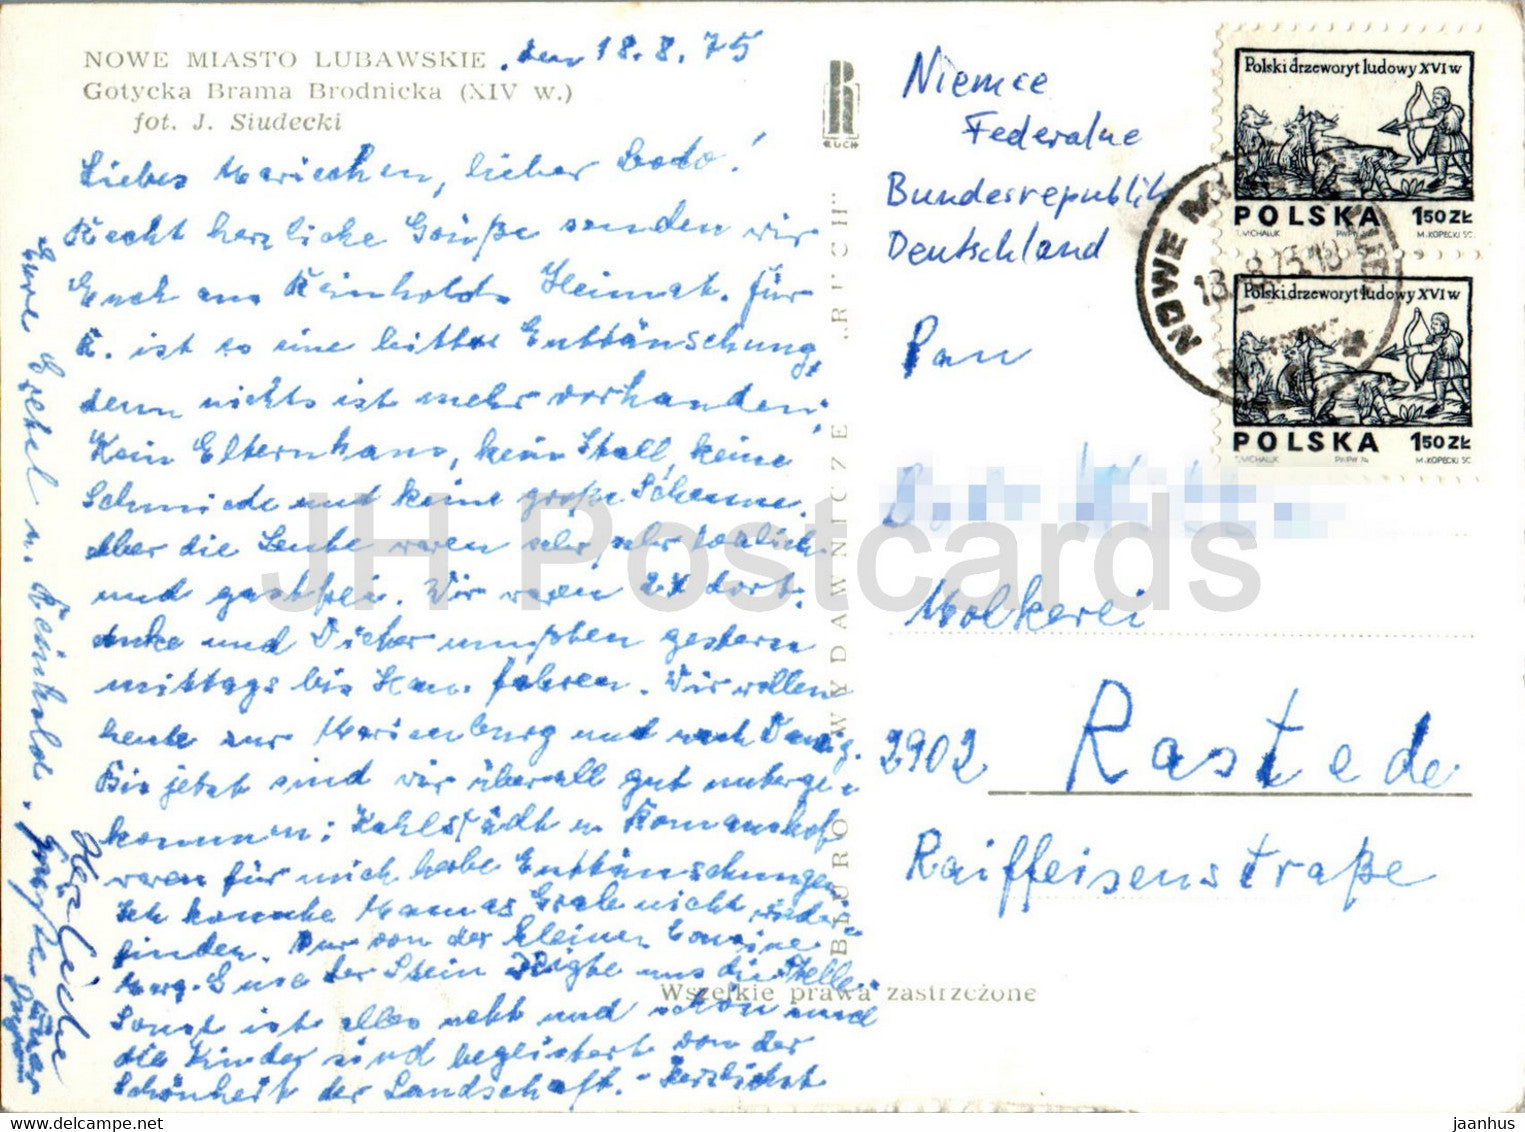 NOWE MIASTO LUBAWSKIE
Gotycka Brama Brodnicka (XIV w.)
fot. J. Siudecki
, den 18.8.75
Liebes Mariechen, lieber Bodo!
Recht herzliche Grüße senden wir
Euch aus Reinholds Heimat. Für
R. ist es eine bittere Enttäuschung,
denn nichts ist mehr vorhanden;
Kein Elternhaus, kein Stall, keine
Schmiede und keine große Scheune.
Aber die Leute waren sehr, sehr
und gastfrei. Wir waren 2x dort.
Anke und Dieter mußten gestern
mittags bis Han. fahren. Wir wollen
heute zur Marienburg und nach Danzig.
Bis jetzt sind wir überall gut unterge-
kommen; Kahlstädt u. Romanshof
waren für mich herbe Enttäuschungen
Ich konnte Mamas Grab nicht wieder-
finden. Nur von der kleinen Cousine
der Stein zeigte uns die Stelle.
Sonst ist alles nett und schön und
die Kinder sind begeistert von der
Schönheit der Landschaft. - Herzlichst
Eure Gretel u. Reinhold.
Herzliche
RUCH
BIURO WYDAWNICZE „RUCH"
Wszelkie prawa zastrzeżone
Niemce
Federalne
Bundesrepublik
Deutschland
Pan
Molkerei
2902 Rastede
Raiffeisenstraße
Polski drzeworyt ludowy XVI w
POLSKA 1,50 ZŁ
T. MICHALUK PWPW 74 M. KOPECKI SC.
Polski drzeworyt ludowy XVI w
POLSKA 1,50 ZŁ
T. MICHALUK PWPW 74 M. KOPECKI SC.
NOWE MI
18.8.75.18
JH Postcards
jaanhus © www.delcampe.net